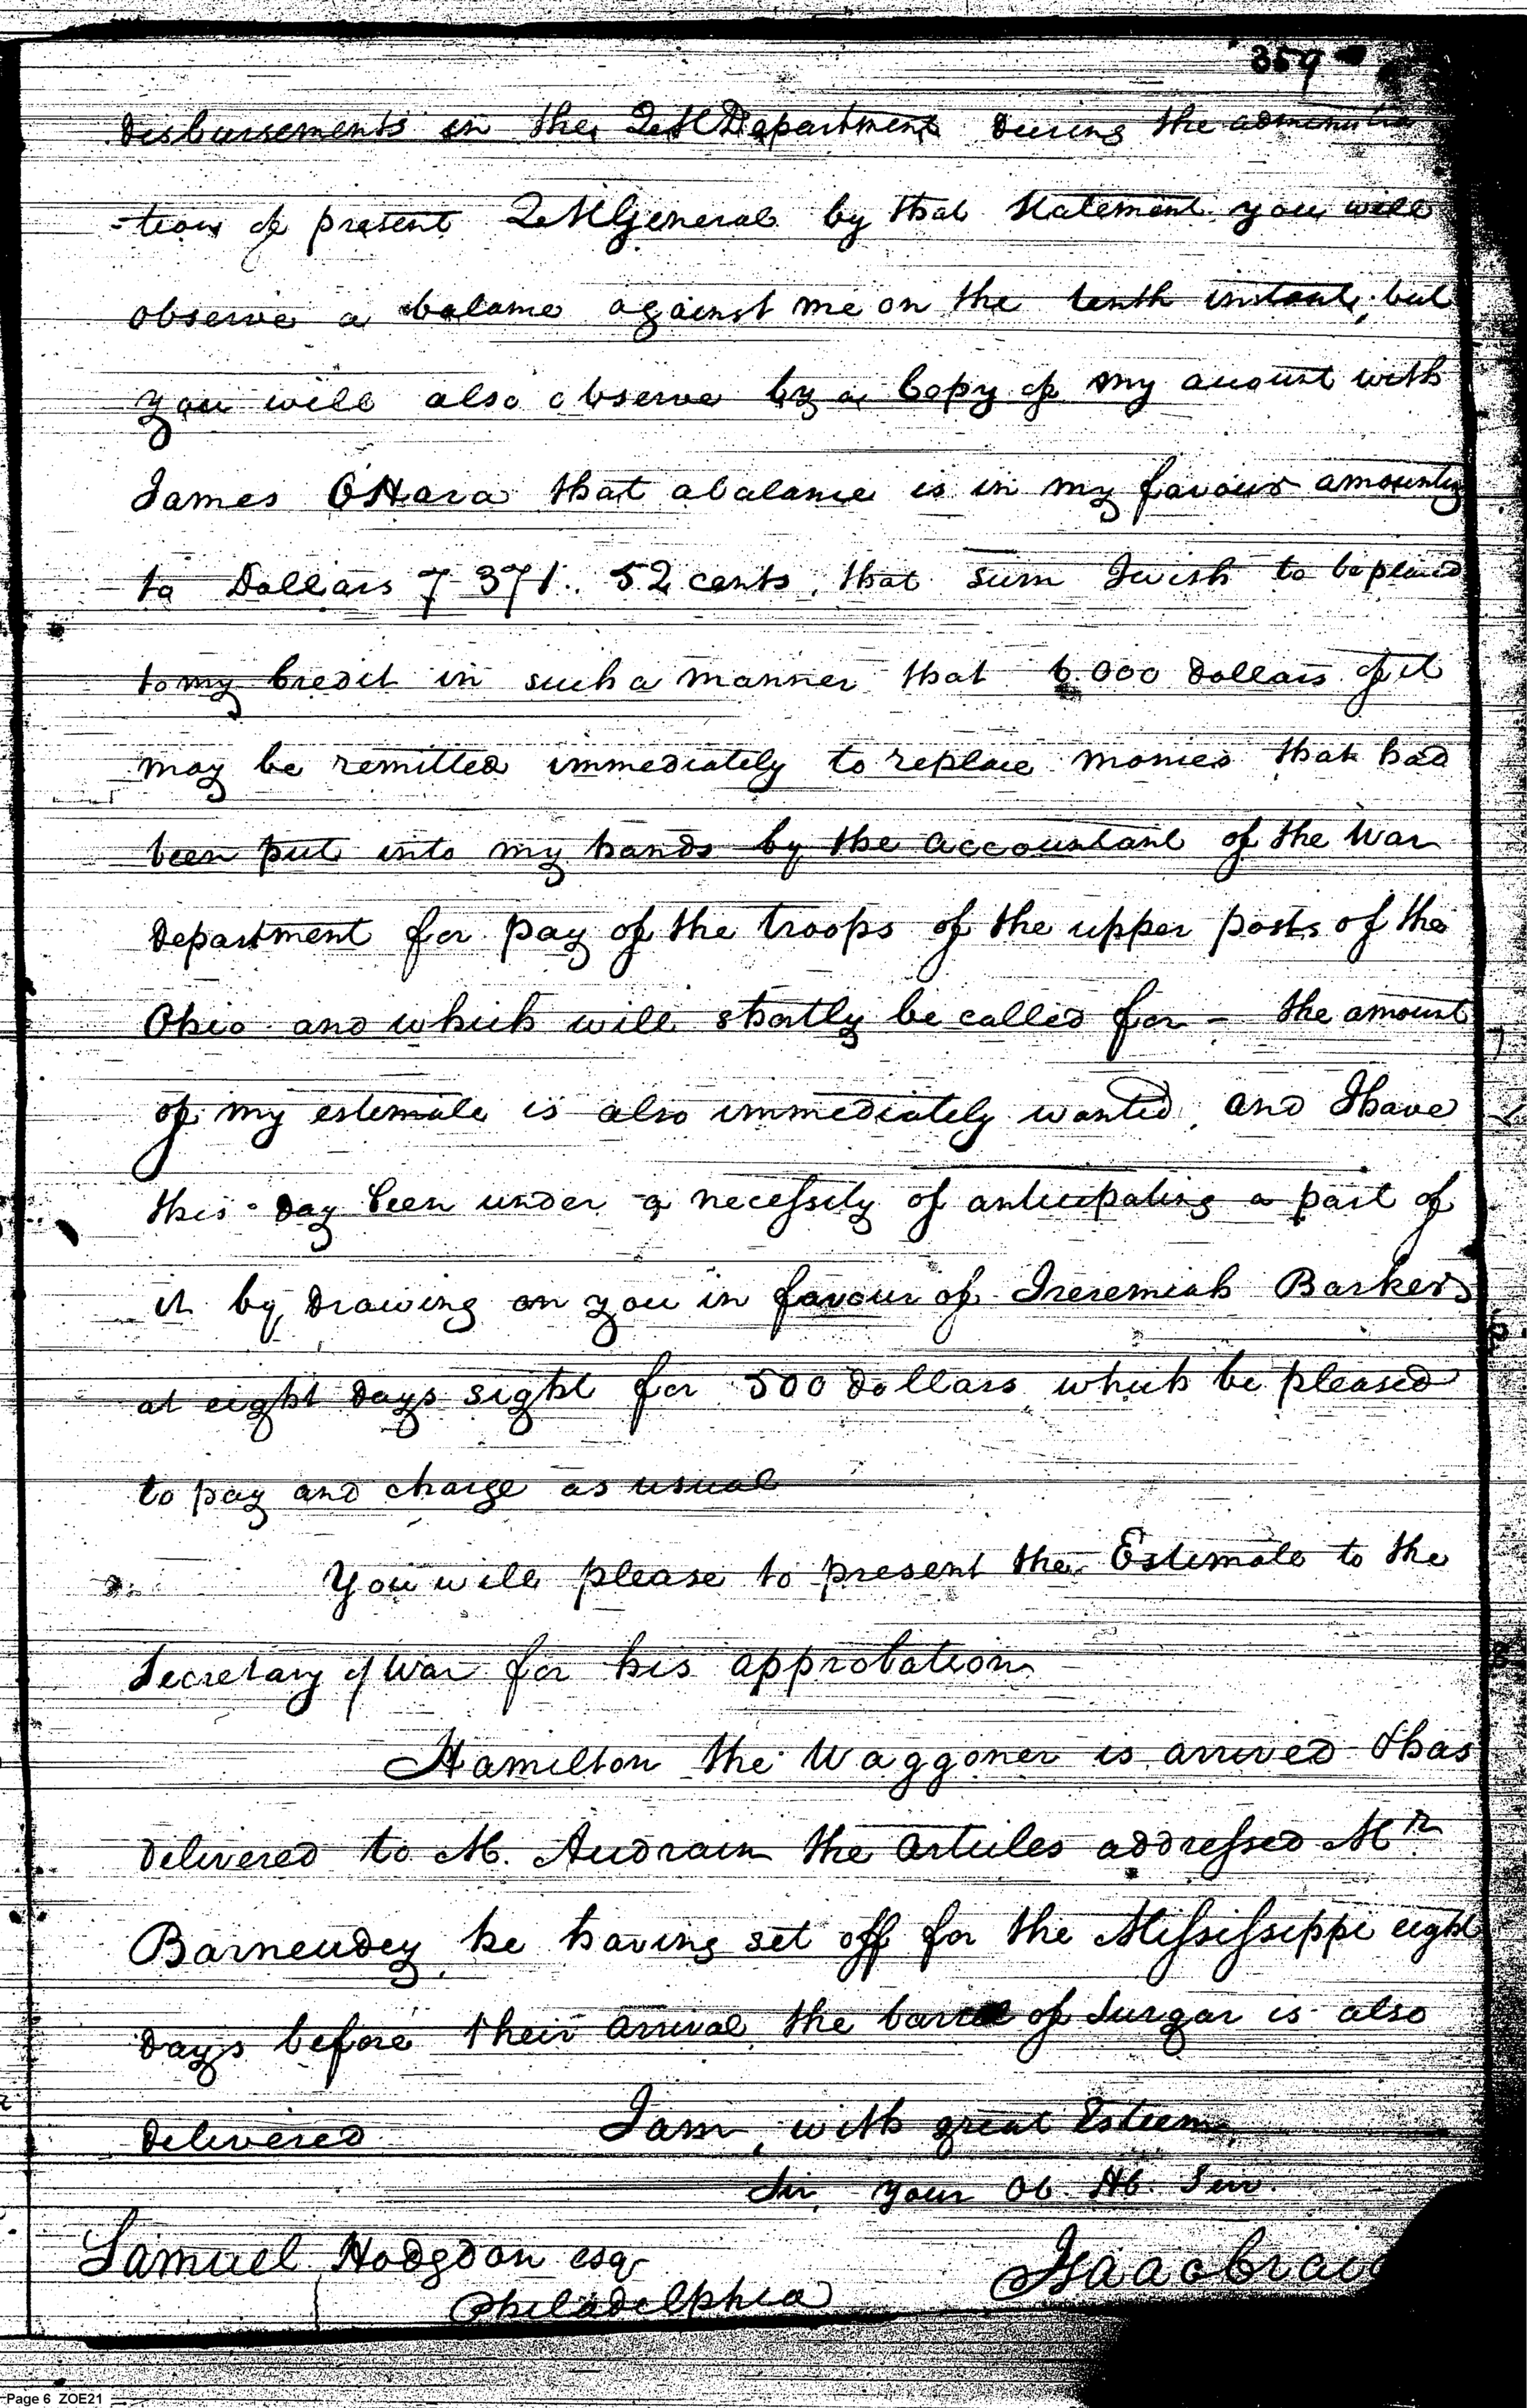 359
disbursements in the QM Department during the administra
-tion of present QMGeneral by that Statement you will
observe a balance against me on the tenth instant, but
you will also observe by a Copy of my account with
James OHara that a balance is in my favour amounting
to Dollars 7371.. 52 cents, that sum I wish to be placed
to my Credit in such a manner that 6.000 dollars of it
may be remitted immediately to replace monies that had
been put into my hands by the accountant of the War
Department for pay of the troops of the upper posts of the
Ohio and which will shortly be called for - the amount
of my estemate is also immediately wanted, and I have
this day been under a necessity of anticipating a part of
it by drawing on you in favour of Jreremiah Barker
at eight days sight for 500 dollars which be pleased
to pay and charge as usual
You will please to present the Estimate to the
Secretary of War for his approbation
Hamilton the Waggoner is arrived & has
delivered to M. Audrain the articles addressed Mr.
Barneudey he having set off for the Mississippi eight
days before their arrival the barrel of Surgar is also
delivered I am, with great Esteem,
Sir, your Ob. Hb. Serv.
Samuel Hodgdon esqr Isaac Craig
Philadelphia
Page 6 ZOE21